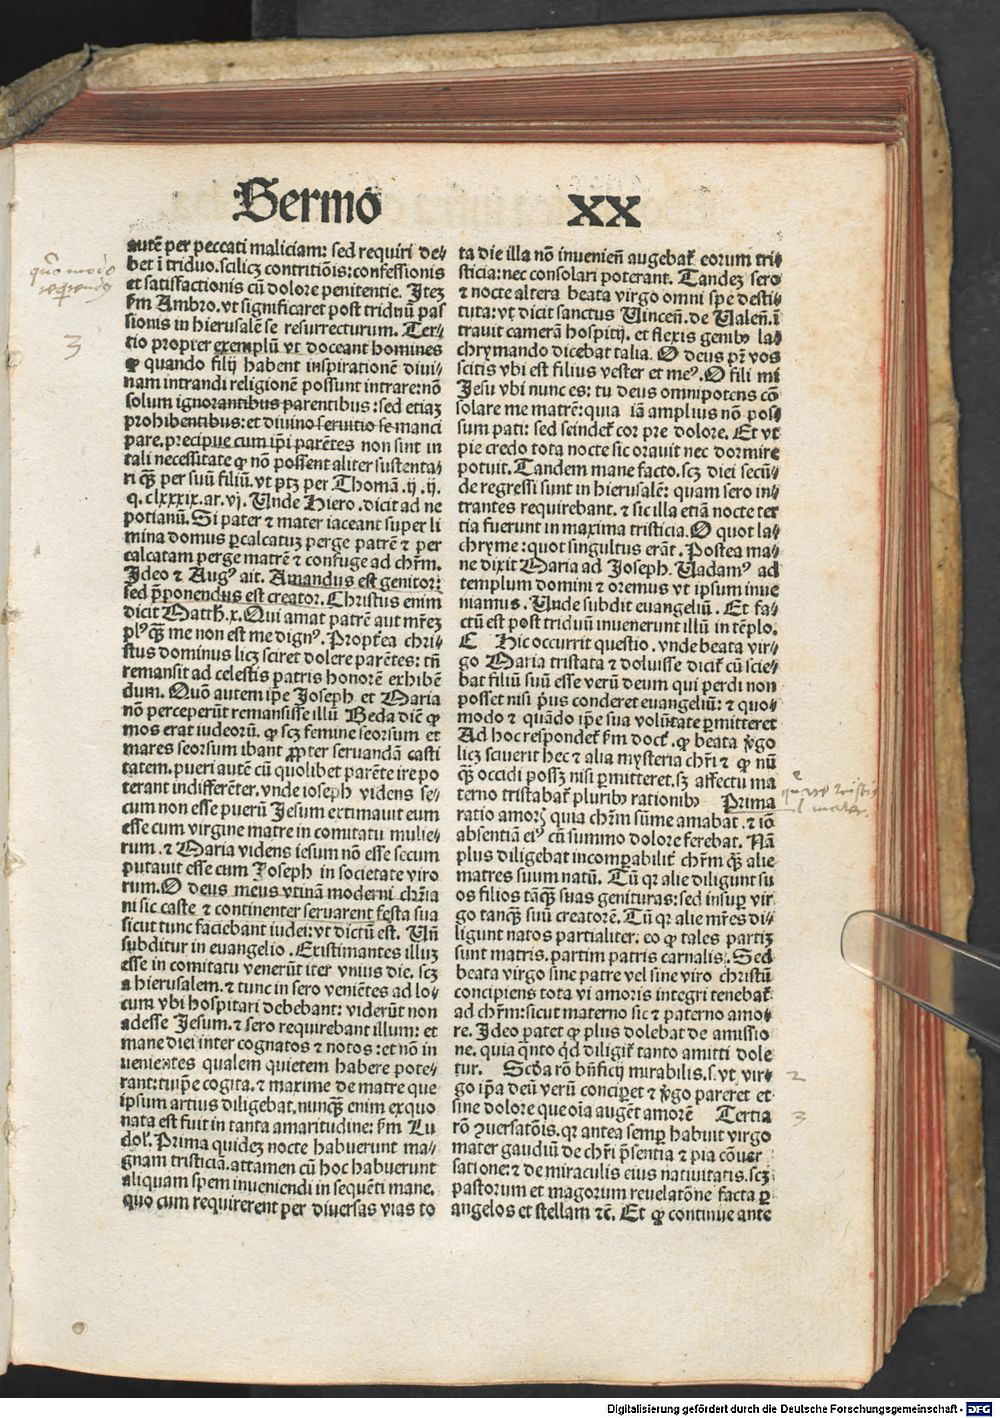 Sermo XX
autē per peccati maliciam: sed requiri de⸗
bet ī triduo. scilicȝ contritiōis: confessionis
et satisfactionis cū dolore penitentie. Iteȝ
ẜm Ambro. vt significaret post triduū pas
sionis in hierusalē se resurrecturum. Ter⸗
tio propter exemplū vt doceant homines
ꝙ quando filij habent inspirationē diui⸗
nam intrandi religionē possunt intrare: nō
solum ignorantibus parentibus: sed etiaȝ
prohibentibus: et diuino seruitio se manci
pare. precipue cum ip̄i parētes non sint in
tali necessitate ꝙ nō possent aliter sustenta⸗
ri q̄ȝ per suū filiū. vt ptȝ per Thomā. ij. ij.
q. clxxxix. ar. vj. Unde Hiero. dicit ad ne
potianū. Si pater ⁊ mater iaceant super li
mina domus ꝑcalcatuȝ perge patrē ⁊ per
calcatam perge matrē ⁊ confuge ad chr̄m.
Ideo ⁊ Augꝰ ait. Amandus est genitor:
sed p̄ponendus est creator. Christus enim
dicit Matth̄. x. Qui amat patrē aut mr̄eȝ
plꝰ q̄ȝ me non est me dignꝰ. Propt̄ea chri⸗
stus dominus licȝ sciret dolere parētes: tn̄
remansit ad celestis patris honorē exhibē
dum. Quō autem ip̄e Ioseph et Maria
nō perceperūt remansisse illū Beda diē ꝙ
mos erat iudeorū. ꝙ scȝ femine seorsum et
mares seorsum ibant ꝓpter seruandā casti
tatem. pueri autē cū quolibet parēte ire po
terant indifferēter. vnde ioseph videns se⸗
cum non esse puerū Jesum extimauit eum
esse cum virgine matre in comitatu mulie⸗
rum. ⁊ Maria videns iesum nō esse secum
putauit esse cum Joseph in societate viro
rum. O deus meus vtinā moderni chr̄ia
ni sic caste ⁊ continenter seruarent festa sua
sicut tunc faciebant iudei: vt dictū est. Un̄
subditur in euangelio. Existimantes illuȝ
esse in comitatu venerūt iter vnius die. scȝ
a hierusalem. ⁊ tunc in sero veniētes ad lo⸗
cum vbi hospitari debebant: viderūt non
adesse Jesum. ⁊ sero requirebant illum: et
mane diei inter cognatos ⁊ notos: et nō in
uenientes qualem quietem habere pote⸗
rant: tuip̄e cogita. ⁊ maxime de matre que
ipsum artius diligebat. nunq̄ȝ enim ex quo
nata est fuit in tanta amaritudine: ẜm Lu
dol̄. Prima quideȝ nocte habuerunt ma⸗
gnam tristiciā. attamen cū hoc habuerunt
aliquam spem inueniendi in sequēti mane.
quo cum requirerent per diuersas vias to
ta die illa nō inuenien̄ augebat̄ eorum tri⸗
sticia: nec consolari poterant. Tandeȝ sero
⁊ nocte altera beata virgo omni spe desti⸗
tuta: vt dicit sanctus Vincen̄. de Valen̄. ī
trauit camerā hospitij. et flexis genibꝰ la⸗
chrymando dicebat talia. O deus pr̄ vos
scitis vbi est filius vester et meꝰ. O fili mi
Jesu vbi nunc es: tu deus omnipotens cō
solare me matrē: quia iā amplius nō pos⸗
sum pati: sed scindet̄ cor pre dolore. Et vt
pie credo tota nocte sic orauit nec dormire
potuit. Tandem mane facto. scȝ diei secū⸗
de regressi sunt in hierusalē: quam sero in⸗
trantes requirebant. ⁊ sic illa etiā nocte ter
tia fuerunt in maxima tristicia. O quot la⸗
chryme: quot singultus erāt. Postea ma⸗
ne dixit Maria ad Joseph. Vadamꝰ ad
templum domini ⁊ oremus vt ipsum inue
niamus. Unde subdit euangeliū. Et fa⸗
ctū est post triduū inuenerunt illū in tēplo.
C Hic occurrit questio. vnde beata vir⸗
go Maria tristata ⁊ doluisse dicit̄ cū scie⸗
bat filiū suū esse verū deum qui perdi non
posset nisi pͥus conderet euangeliū: ⁊ quo⸗
modo ⁊ quādo ip̄e sua volūtate ꝑmitteret
Ad hoc respondet̄ ẜm doct̄. ꝙ beata ꝟgo
licȝ sciuerit hec ⁊ alia mysteria chr̄i ⁊ ꝙ nū
q̄ȝ occidi possȝ nisi ꝑmitteret. sȝ affectu ma
terno tristabat̄ pluribꝰ rationibꝰ Prima
ratio amorȝ quia chr̄m sūme amabat. ⁊ iō
absentiā eiꝰ cū summo dolore ferebat. Nā
plus diligebat incomꝑabilit̄ chr̄m q̄ȝ alie
matres suum natū. Tū qꝛ alie diligunt su
os filios tāq̄ȝ suas genituras: sed insuꝑ vir
go tanq̄ȝ suū creatorē. Tū qꝛ alie mr̄es di⸗
ligunt natos partialiter. eo ꝙ tales partiȝ
sunt matris. partim patris carnalis. Sed
beata virgo sine patre vel sine viro christū
concipiens tota vi amoris integri tenebat̄
ad chr̄m: sicut materno sic ⁊ paterno amo⸗
re. Ideo patet ꝙ plus dolebat de amissio
ne. quia q̄nto qͥd diligit̄ tanto amitti dole
tur. Scd̄a rō bn̄ficij mirabilis. s. vt vir⸗
go ip̄a deū verū conciꝑet ⁊ ꝟgo pareret et
sine dolore que oīa augēt amorē Tertia
rō ꝯuersatōis. qꝛ antea semꝑ habuit virgo
mater gaudiū de chr̄i p̄sentia ⁊ pia cōuer
satione: ⁊ de miraculis eius natiuitatis. scȝ
pastorum et magorum reuelatōne facta ꝑ
angelos et stellam ⁊c̄. Et ꝙ continue ante
3
2
3
Digitalisierung gefördert durch die Deutsche Forschungsgemeinschaft - DFG